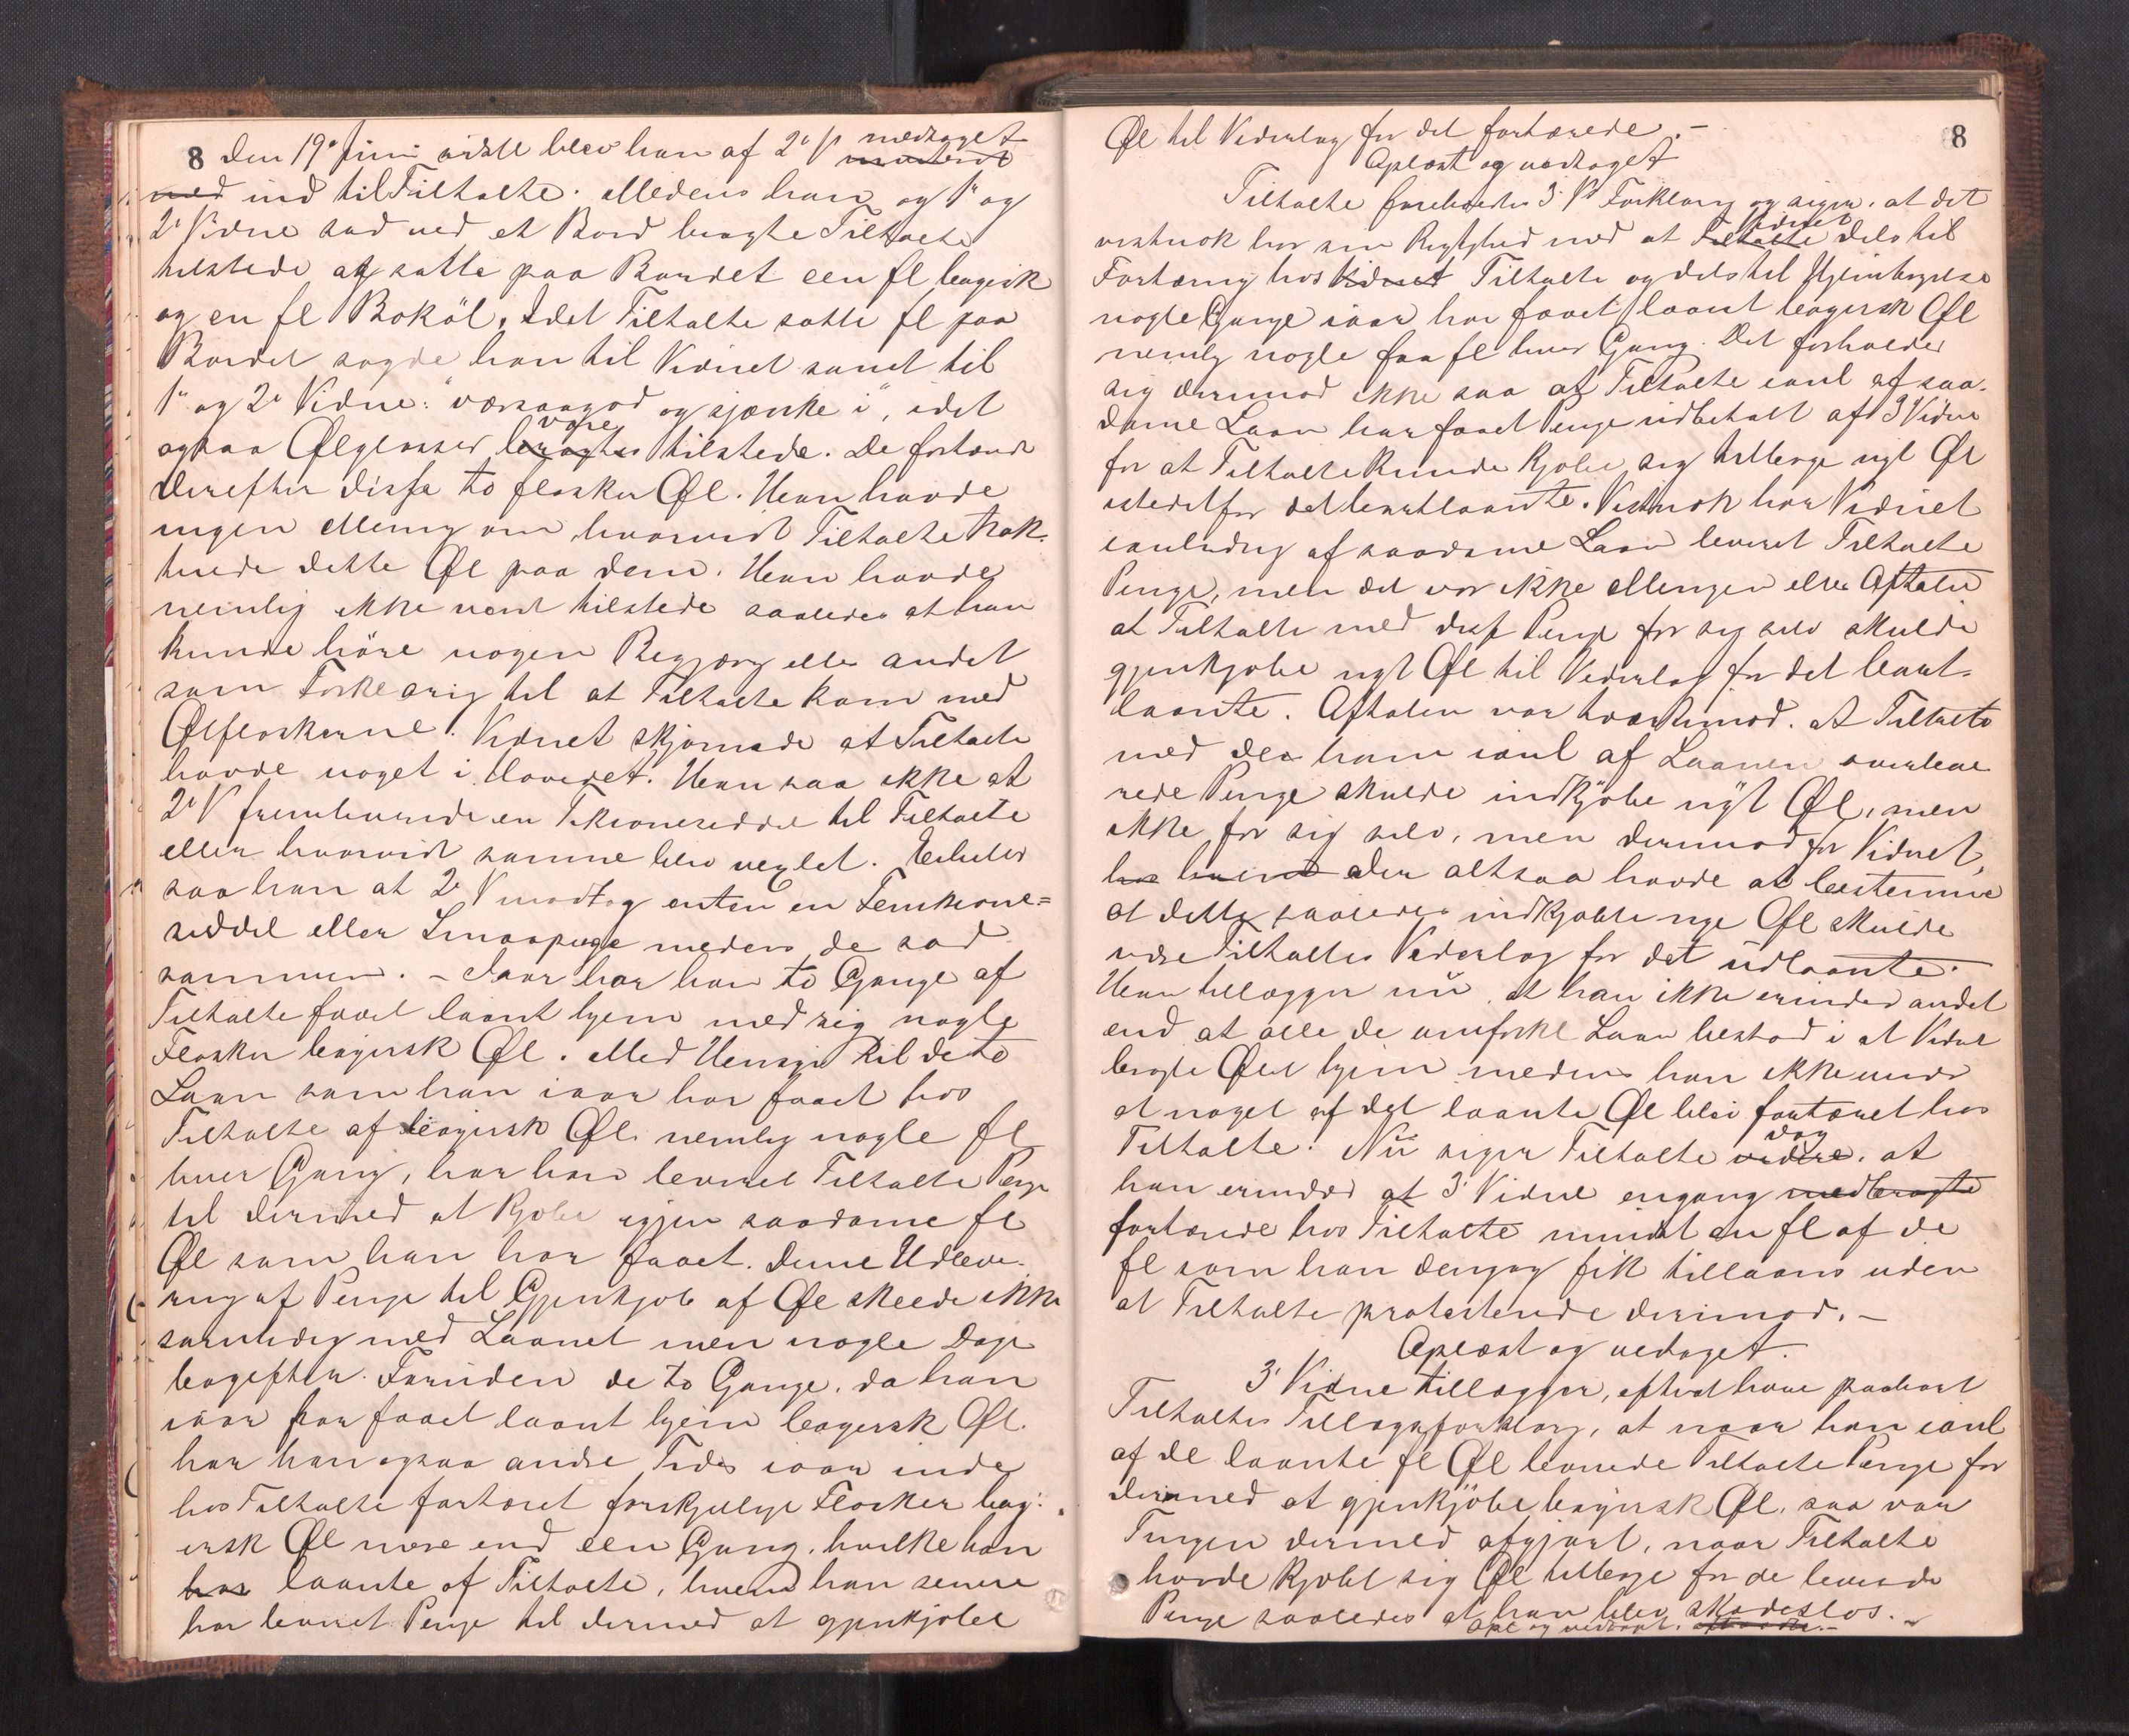 8 Den 19de Juni sidstl blev han af 2det V medtaget inviteret
med ind til Tiltalte. Medens han og 1ste og
2det Vidne sad ved et Bord bragte Tiltalte
tilstede og satte paa Bordet een fl bayersk
og en fl Boköl. Idet Tiltalte satte fl paa
Bordet sagde han til Vidnet samt til
1ste og 2det Vidne: "værsaagod og skjænke i", idet
ogsaa Ølglasser bragtes vare tilstede. De fortærede
derefter disse to flasker Øl. Han havde
ingen Mening om hvorvidt Tiltalte trak-
terede dette Øl paa dem. Han havde
nemlig ikke været tilstede saaledes at han
kunde höre nogen Begjæring eller andet
som Forklaring til at Tiltalte kom med
Ølflaskerne. Vidnet skjønnede at Tiltalte
havde noget i Hovedet. Han saa ikke at
2det V fremleverede en Tikroneseddel til Tiltalte
eller hvorvidt samme blev vexlet.
saa han at 2det V modtog enten en Femkrone=
seddel eller Smaapenge medens de sad
sammen. – Iaar har han to Gange af
Tiltalte faaet laant hjem med sig nogle
Flasker bayersk Øl. Med Hensyn til de to
Laan som han iaar har faaet hos
Tiltalte af bayersk Øl nemlig nogle fl
hver Gang, har han leveret Tiltalte Penge
til dermed at kjøbe igjen saadanne fl
Øl som han har faaet. Denne Udleve-
ring af Penge til Gjenkjøb af Øl skeede ikke
samtidig med Laanet men nogle Dage
bagefter. Foruden de to Gange, da han
iaar har faaet laant hjem bayersk Øl.
har han ogsaa andre Tider iaar inde
hos Tiltalte fortæret forskjellige Flasker bay-
ersk Øl mere end een Gang, hvilke han
har laante af Tiltalte, hvem han senere
har leveret Penge til dermed at gjenkjøbe
8
Øl til Vederlag for det fortærede. –
Oplæst og vedtaget
Tiltalte foreholdes 3die Vs Forklaring og siger, at det
vistnok har sin Rigtighed med at Tiltalte Vidnet dels til
Fortæring hos Vidnet Tiltalte og dels til Hjembringelse
nogle Gange iaar har faaet laant bayersk Øl
nemlig nogle faa fl hver Gang. Det forholder
sig derimod ikke saa at Tiltalte ianl af saa-
danne Laan har faaet Penge udbetalt af 3die Vidne
for at Tiltalte kunde kjøbe sig tilbage nyt Øl
istedetfor det bortlaante. Vistnok har Vidnet
ianledng af saadanne Laan leveret Tiltalte
Penge, men det var ikke Meningen eller Aftalen
at Tiltalte med disse Penge for sig selv skulde
gjenkjøbe nyt Øl til Vederlag for det bort-
laante. Aftalen var tværtimod, at Tiltalte
med de ham ianl af Laanen overleve
rede Penge skulde indkjöbe nyt Øl, men
ikke for sig selv, men derimod for Vidnet,
der altsaa havde at bestemme
at dette saaledes indkjøbte nye Øl skulde
være Tiltaltes Vederlag for det udlaante.
Han tillægger nu, at han ikke erindrer andet
end at alle de omforkl Laan bestod i at Vidnet
bragte Øllet hjem medens han ikke
at noget af det laante Øl blev fortæret hos
Tiltalte. Nu siger Tiltalte videre dog at
han erindrer at 3die Vidne engang medbragte
fortærede hos Tiltalte mindst en fl af de
fl som han dengang fik tillaans uden
at Tiltalte protesterede derimod. –
Oplæst og vedtaget.
3die Vidne tillægger, efterat have paahørt
Tiltaltes Tillægsforklarg, at naar han ianl
af de laante fl Øl leverede Tiltalte Penge for
dermed at gjenkjöbe bayersk Øl, saa var
Tingen dermed afgjort, naar Tiltalte
havde kjøbt sig Øl tilbage for de leverede
Penge saaledes at han blev skadesløs. –
Opl og vedtaget.